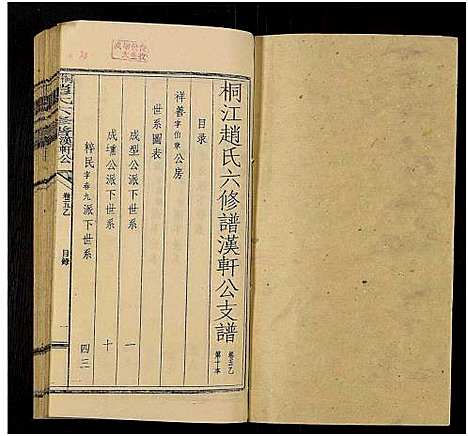 桐江趙氏六修譜漢軒公支譜 卷五乙 第十本
目录
祥善字伯章公房
世系圖表
成型公派下世系 一
成壎公派下世系 十
粹民字春九派下世系 四三
漢軒公 卷五乙 目錄 一